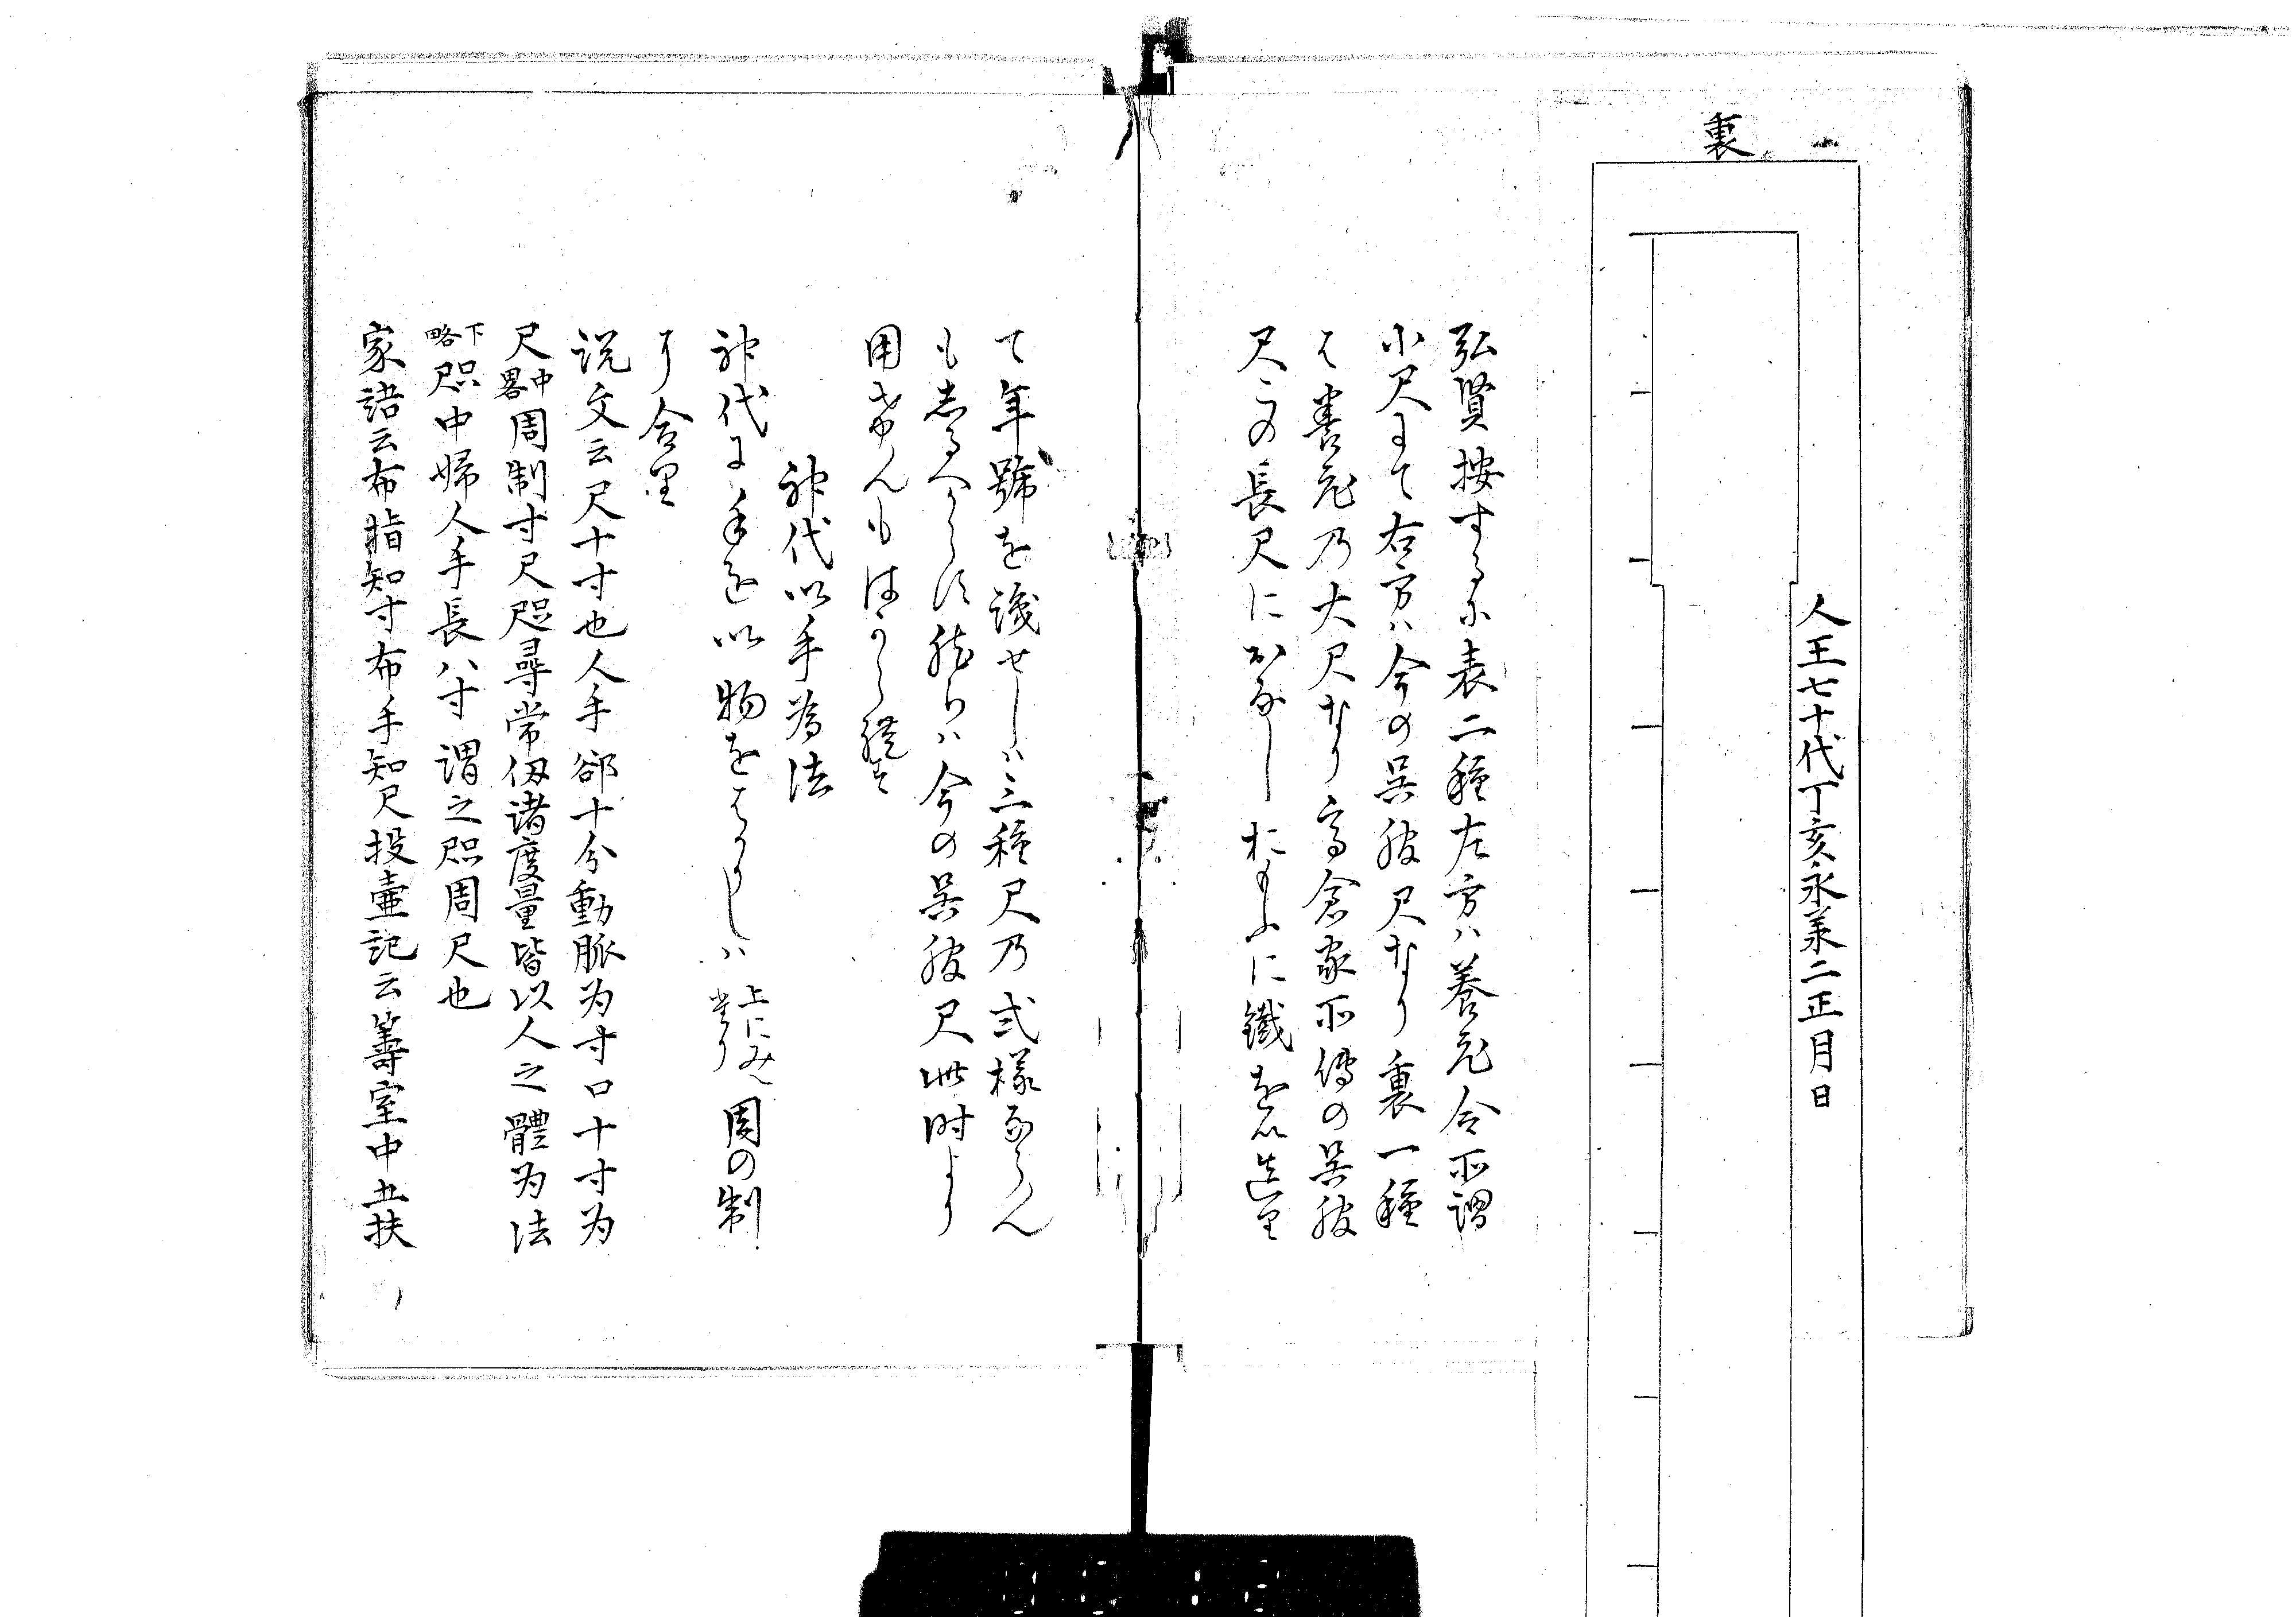 裏
人王七十代丁亥永羕二正月日
弘賢按するに表二種左方ハ養老令所謂
小尺にて右方ハ今の呉服尺なり裏一種
は養老乃大尺なり高倉家所傳の呉服
尺この長尺におなし おもふに鐵を以造里
て年號を識せしハ三種尺乃式様ならん
もしるへからす然らハ今の呉服尺此時より
用
神代以手為法
神代に手を以物をはかりしハ 上にみへ
たり 周の制
に合里
説文云尺十寸也人手郤十分動脈为寸口十寸为
尺 中
畧 周制寸尺咫尋常仭諸度量皆以人之體为法
下
略 咫中婦人手長八寸謂之咫周尺也
家語云布指知寸布手知尺投壷記云籌室中五扶